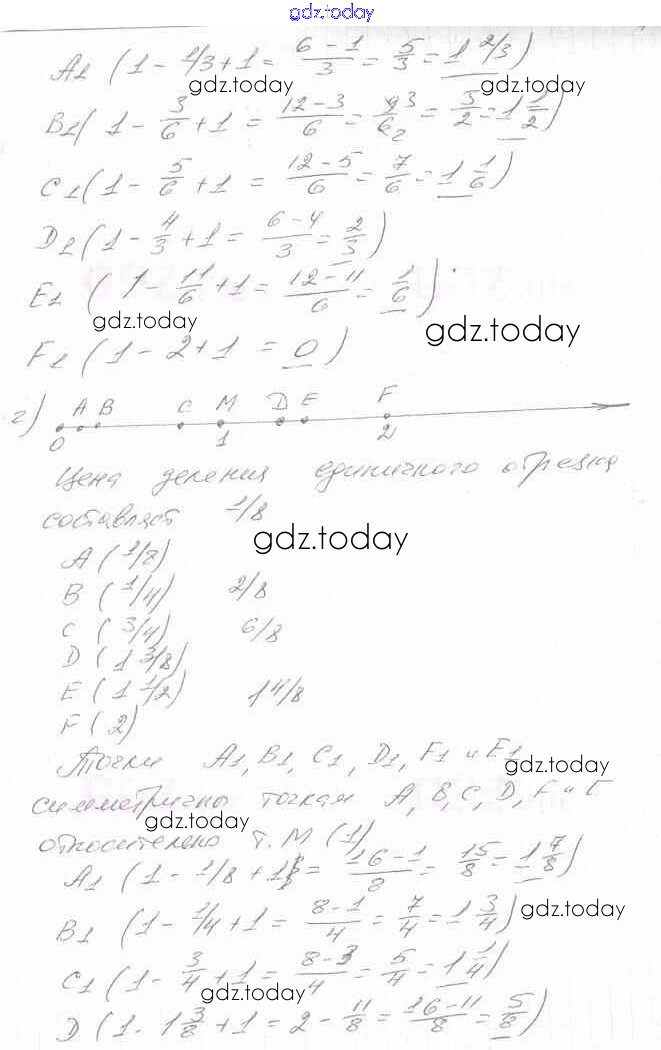 gdz.today
A1 (1 - 1/3 + 1 = (6 - 1)/3 = 5/3 = 1 2/3)
gdz.today
B1 (1 - 3/6 + 1 = (12 - 3)/6 = 9/6 3/2 = 3/2 = 1 1/2)
C1 (1 - 5/6 + 1 = (12 - 5)/6 = 7/6 = 1 1/6)
gdz.today
D1 (1 - 4/3 + 1 = (6 - 4)/3 = 2/3)
E1 (1 - 11/6 + 1 = (12 - 11)/6 = 1/6)
gdz.today
gdz.today
F1 (1 - 2 + 1 = 0)
г) A B C M D E F
0 1 2
Цена деления единичного отрезка
составляет 1/8
gdz.today
A (1/8)
B (1/4) 2/8
C (3/4) 6/8
D (1 3/8)
E (1 1/2) 1 4/8
F (2)
Точки A1, B1, C1, D1, F1 и E1
gdz.today
симметричны точкам A, B, C, D, F и E
gdz.today
относительно т. M (1)
A1 (1 - 1/8 + 1 = (16 - 1)/8 = 15/8 = 1 7/8)
B1 (1 - 1/4 + 1 = (8 - 1)/4 = 7/4 = 1 3/4)
gdz.today
C1 (1 - 3/4 + 1 = (8 - 3)/4 = 5/4 = 1 1/4)
gdz.today
D (1 - 1 3/8 + 1 = 2 - 11/8 = (16 - 11)/8 = 5/8)